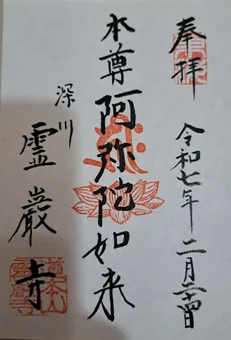 奉拝
令和七年二月二十四日
本尊阿弥陀如来
深川
霊巌寺